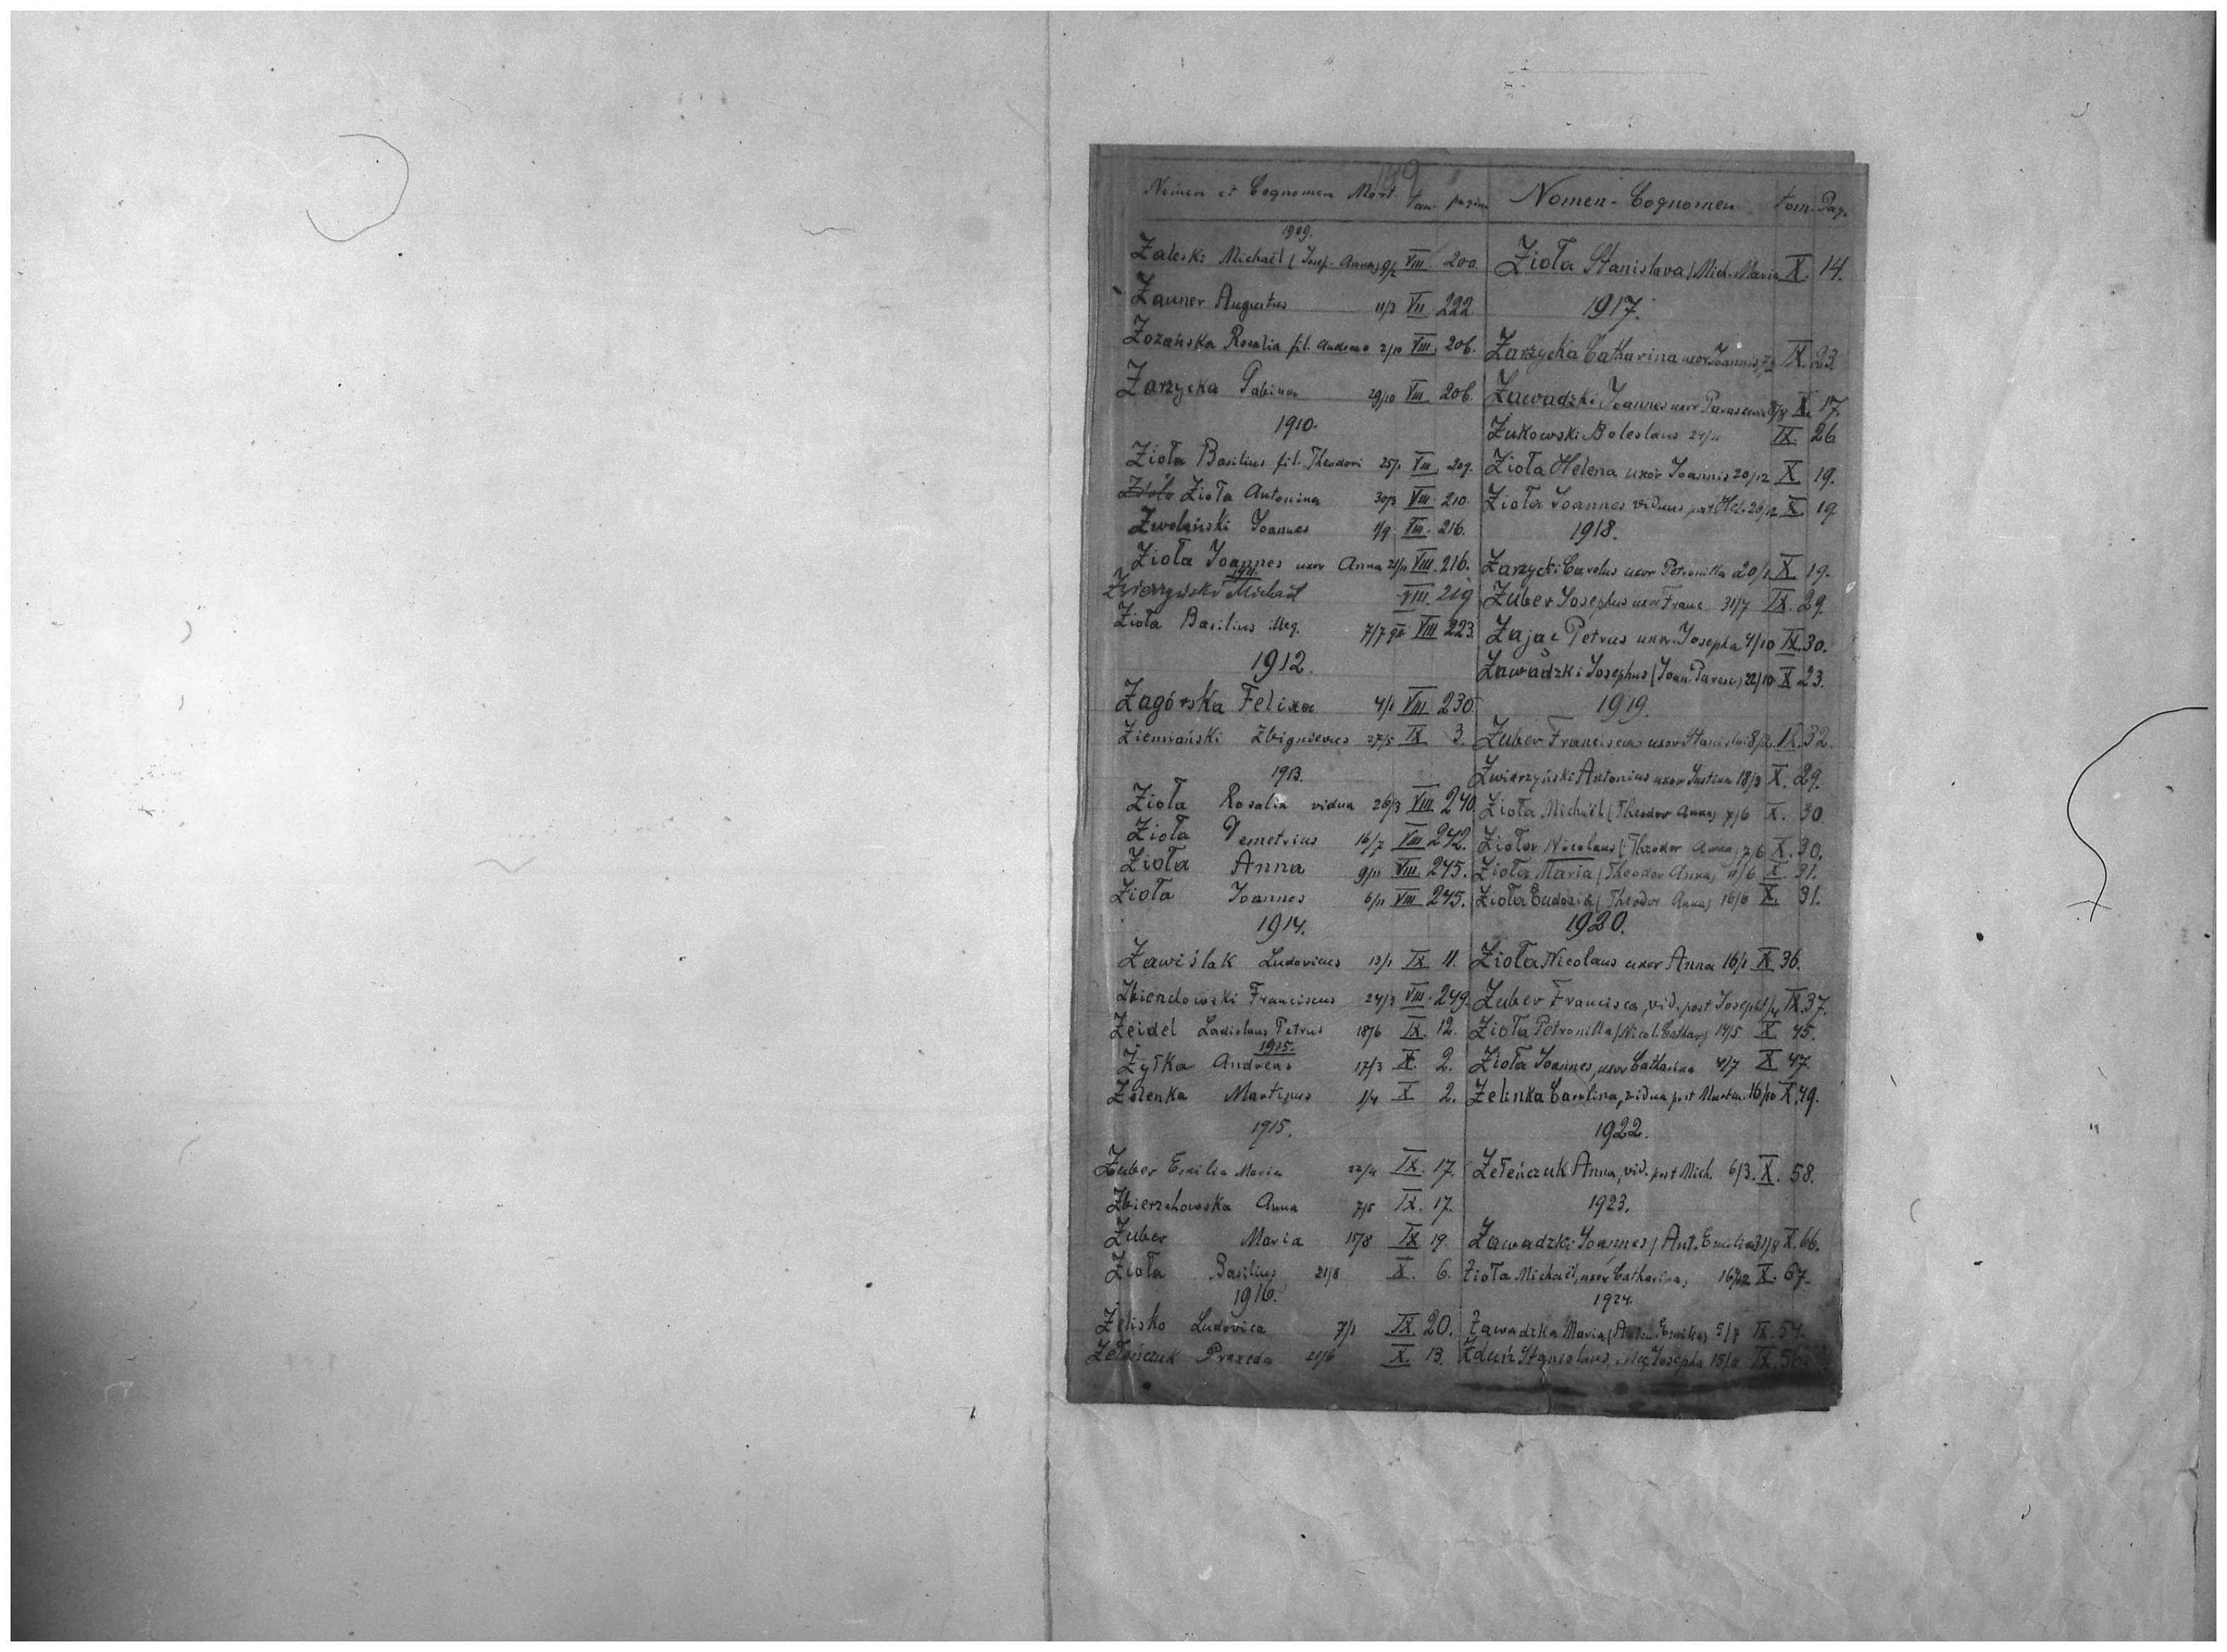 149
Nomen et Cognomen Mort. tom. pagina
1909.
Zaleski Michaël (Josef. Anna) 9/2 VIII 200.
Zauner Augustus 11/3 VII 222
Zozańska Rosalia fil. Andreae 2/10 VIII. 206.
Zarzycka Sabina 29/10 VIII 206.
1910.
Zioła Basilius fil. Theodori 25/1 VIII 209.
Zioła Antonina 30/3 VIII. 210.
Zwolański Joannes 1/9 VIII. 216.
Zioła Joannes uxor Anna 21/11 VIII. 216.
1911.
Zwierzyński Michaël VIII. 219
Zioła Basilius illeg. 7/7 VIII 223.
1912.
Zagórska Felixa 4/1 VIII 230
Ziemiański Zbignievus 27/5 IX 3.
1913.
Zioła Rosalia vidua 26/3 VIII 240
Zioła Demetrius 16/7 VIII 242.
Zioła Anna 9/11 VIII. 245.
Zioła Joannes 6/11 VIII 245.
1914.
Zawiślak Ludovicus 13/1 IX 11.
Franciscus 24/3 VIII. 249.
Zeidel Ladislaus Petrus 18/6 IX. 12.
1915.
Żyłka Andreas 17/3 X. 2.
Zelenka Martinus 1/4 X 2.
1915.
Zuber Emilia Maria 22/4 IX. 17.
Zbierzchowska Anna 7/5 IX. 17.
Zuber Maria 15/8 IX 19.
Zioła Basilius 21/8 X. 6.
1916.
Zelisko Ludovica 7/1 IX. 20.
Zełeńczuk Praxeda 21/6 X. 13.
Nomen - Cognomen tom. Pag.
Zioła Stanislava (Mich. Maria X. 14.
1917.
Zarzycka Catharina uxor Joannis IX. 23.
Zawadzki Joannes uxor X. 17.
Żukowski Boleslaus 24/11 IX. 26
Zioła Helena uxor Joannis 20/12 X. 19.
Zioła Joannes viduus post Hel. 20/12 X. 19
1918.
Zarzycki Carolus uxor Petronilla 20/1 X 19.
Zuber Josephus uxor Franc. 31/7 IX. 29.
Zając Petrus uxor Josepha 4/10 IX. 30.
Zawadzki Josephus (Joan. Parasc.) 22/10 X 23.
1919.
Zuber Franciscus uxor 8/2 IX. 32.
Zwierzyński Antonius uxor Justina 18/3 X. 29.
Zioła Michaël (Theodor Anna) 7/6 X. 30
Zioła Nicolaus (Theodor Anna) 7/6 X. 30.
Zioła Maria (Theodor Anna) 11/6 X. 31.
Zioła Eudoxia (Theodor Anna) 16/6 X. 31.
1920.
Zioła Nicolaus uxor Anna 16/1 X 36.
Zuber Francisca, vid. post Joseph 1/4 IX. 37.
Zioła Petronilla (Nicol. Cathar) 14/5 X 45.
Zioła Joannes, uxor Catharina 4/7 X 47.
Zelinka Carolina, vidua post Martin. 16/10 X. 49.
1922.
Zełeńczuk Anna, vid. post Mich. 6/3. X. 58.
1923.
Zawadzki Joannes (Ant. Emilia) 31/8 X. 66.
Zioła Michaël, uxor Catharina, 16/12 X. 67.
1924.
Zawadzka Maria (Anton. Emilia) 5/8 IX. 54.
Zduń Stanislaus, illeg. Josepha 15/11 IX. 56.